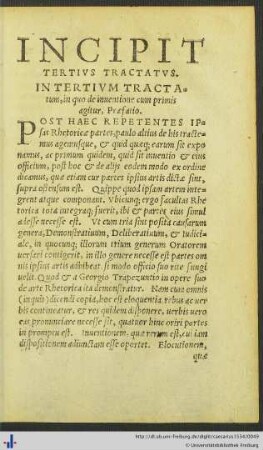 INCIPIT
TERTIVS TRACTATVS.
IN TERTIVM TRACTA-
tum, in quo de inuentione cum primis
agitur, Præfatio.
POST HAEC REPETENTES IP-
sas Rhetoricæ partes, paulo altius de his tracte-
mus agamusque, & quid quæq; earum sit expo-
namus, ac primum quidem, quid sit inuentio & eius
officium, post hoc & de alijs eodem modo ex ordine
dicamus, quæ etiam cur partes ipsius artis dictæ sint,
supra ostensum est. Quippe quod ipsam artem inte-
grent atque componant. Vbicunq; ergo facultas Rhe-
torica tota integraq; fuerit, ibi & partes eius simul
adesse necesse est. Vt cum tria sint posita causarum
genera, Demonstratiuum, Deliberatiuum, & Iudici-
ale, in quocunq; illorum trium generum Oratorem
uersari contigerit, in illo genere necesse est partes om
nis ipsius artis adhibeat, si modo officio suo rite fungi
uelit. Quod & a Georgio Trapezuntio in opere suo
de arte Rhetorica ita demonstratur. Nam cum omnis
(inquit) dicendi copia, hoc est eloquentia rebus ac uer
bis contineatur, & res quidem disponere, uerbis uero
eas pronunciare necesse sit, quatuor hinc oriri partes
in promptu est. Inuentionem, quæ rerum est, cui iam
dispositionem adiunctam esse oportet. Elocutionem,
quæ
http://dl.ub.uni-freiburg.de/diglit/caesarius1534/0069
© Universitätsbibliothek Freiburg